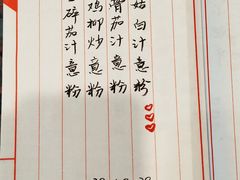 菇白汁意粉
骨茄汁意粉
鸡柳炒意粉
碎茄汁意粉